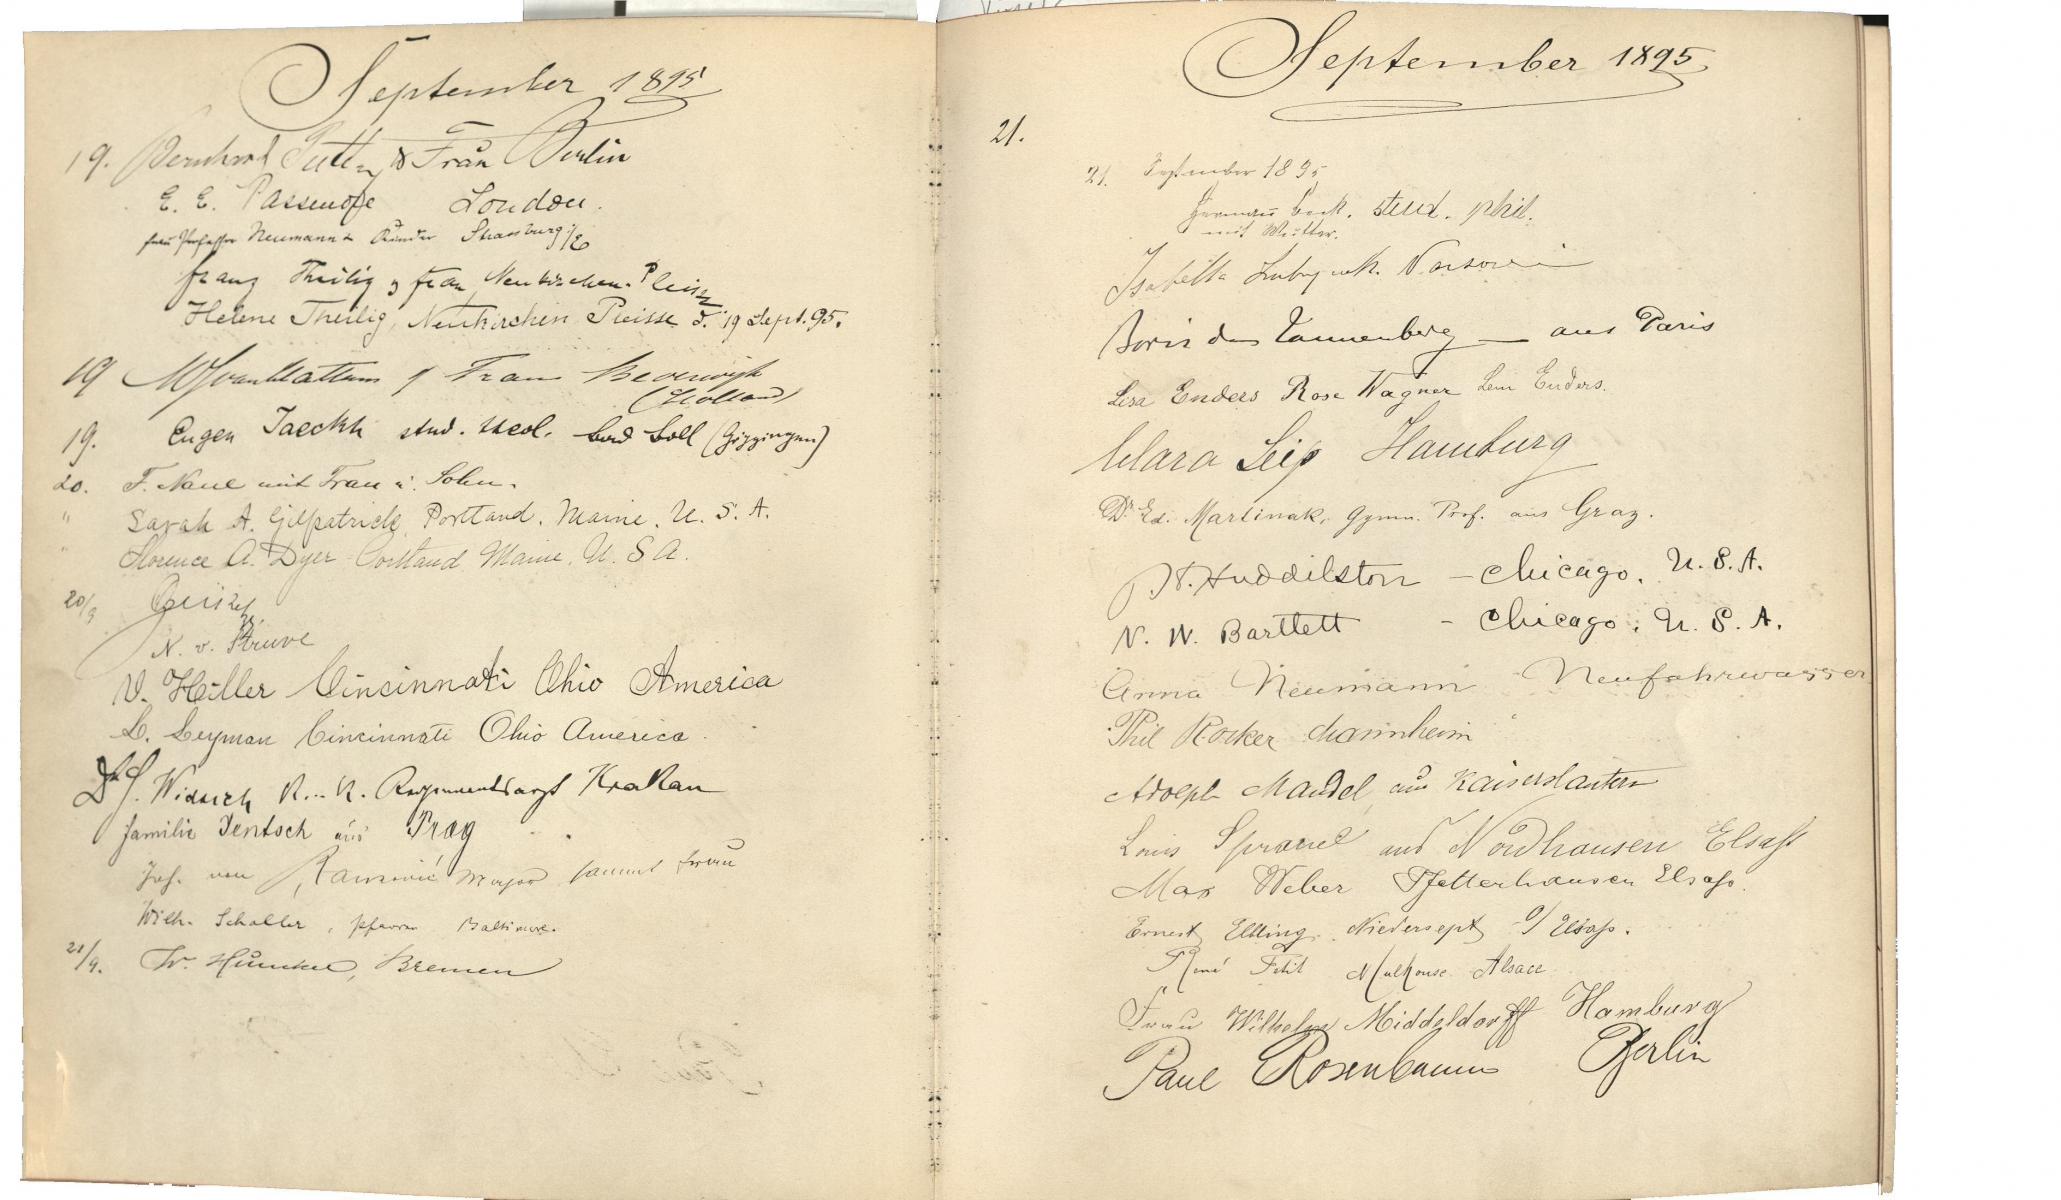 September 1895
19. Bernhard & Frau Berlin
E. E. Passmore London.
Frau Professor Neumann & Kinder Strassburg i/E
Franz Theilig & Frau Neukirchen-Pleisse
Helene Theilig, Neukirchen Pleisse d. 19 Sept. 95.
19 & Frau Beverwijk
(Holland)
19. Eugen Jaeckh stud. theol. Bad Boll (Göppingen)
20. F. Naue mit Frau u. Sohn.
" Sarah A. Gilpatrick, Portland, Maine, U. S. A.
" Florence A. Dyer Portland Maine. U. S A.
20/9
N. v. Struve
V. Hiller Cincinnati Ohio America
L. Leyman Cincinnati Ohio America.
Dr J. Widrich K. u. K. Regimentsarzt Krakau
Familie Jentsch aus Prag
Jos. von Major sammt Frau
Wilh. Schaller, Pfarrer Baltimore.
21/9. W. Hünckel, Bremen
September 1895
21.
21. September 1895
Hermann Beck. stud. phil.
mit Mutter.
Isabella
Boris de Tannenberg — aus Paris
Lisa Enders Rose Wagner Leni Enders.
Clara Seip Hamburg
Dr. Ed. Martinak, Gymn. Prof. aus Graz.
Huddilston – Chicago, U. S. A.
N. W. Bartlett - Chicago, U. S. A.
Anna Neumann Neufahrwasser
Phil Rocker Mannheim
Adolph Mandel aus Kaiserslautern
Louis aus Nordhausen Elsass
Max Weber Pfetterhausen Elsass.
Ernest Elbling Niedersept O/Elsass.
René Petit Mulhouse Alsace
Frau Wilhelm Middeldorff Hamburg
Paul Rosenbaum Berlin